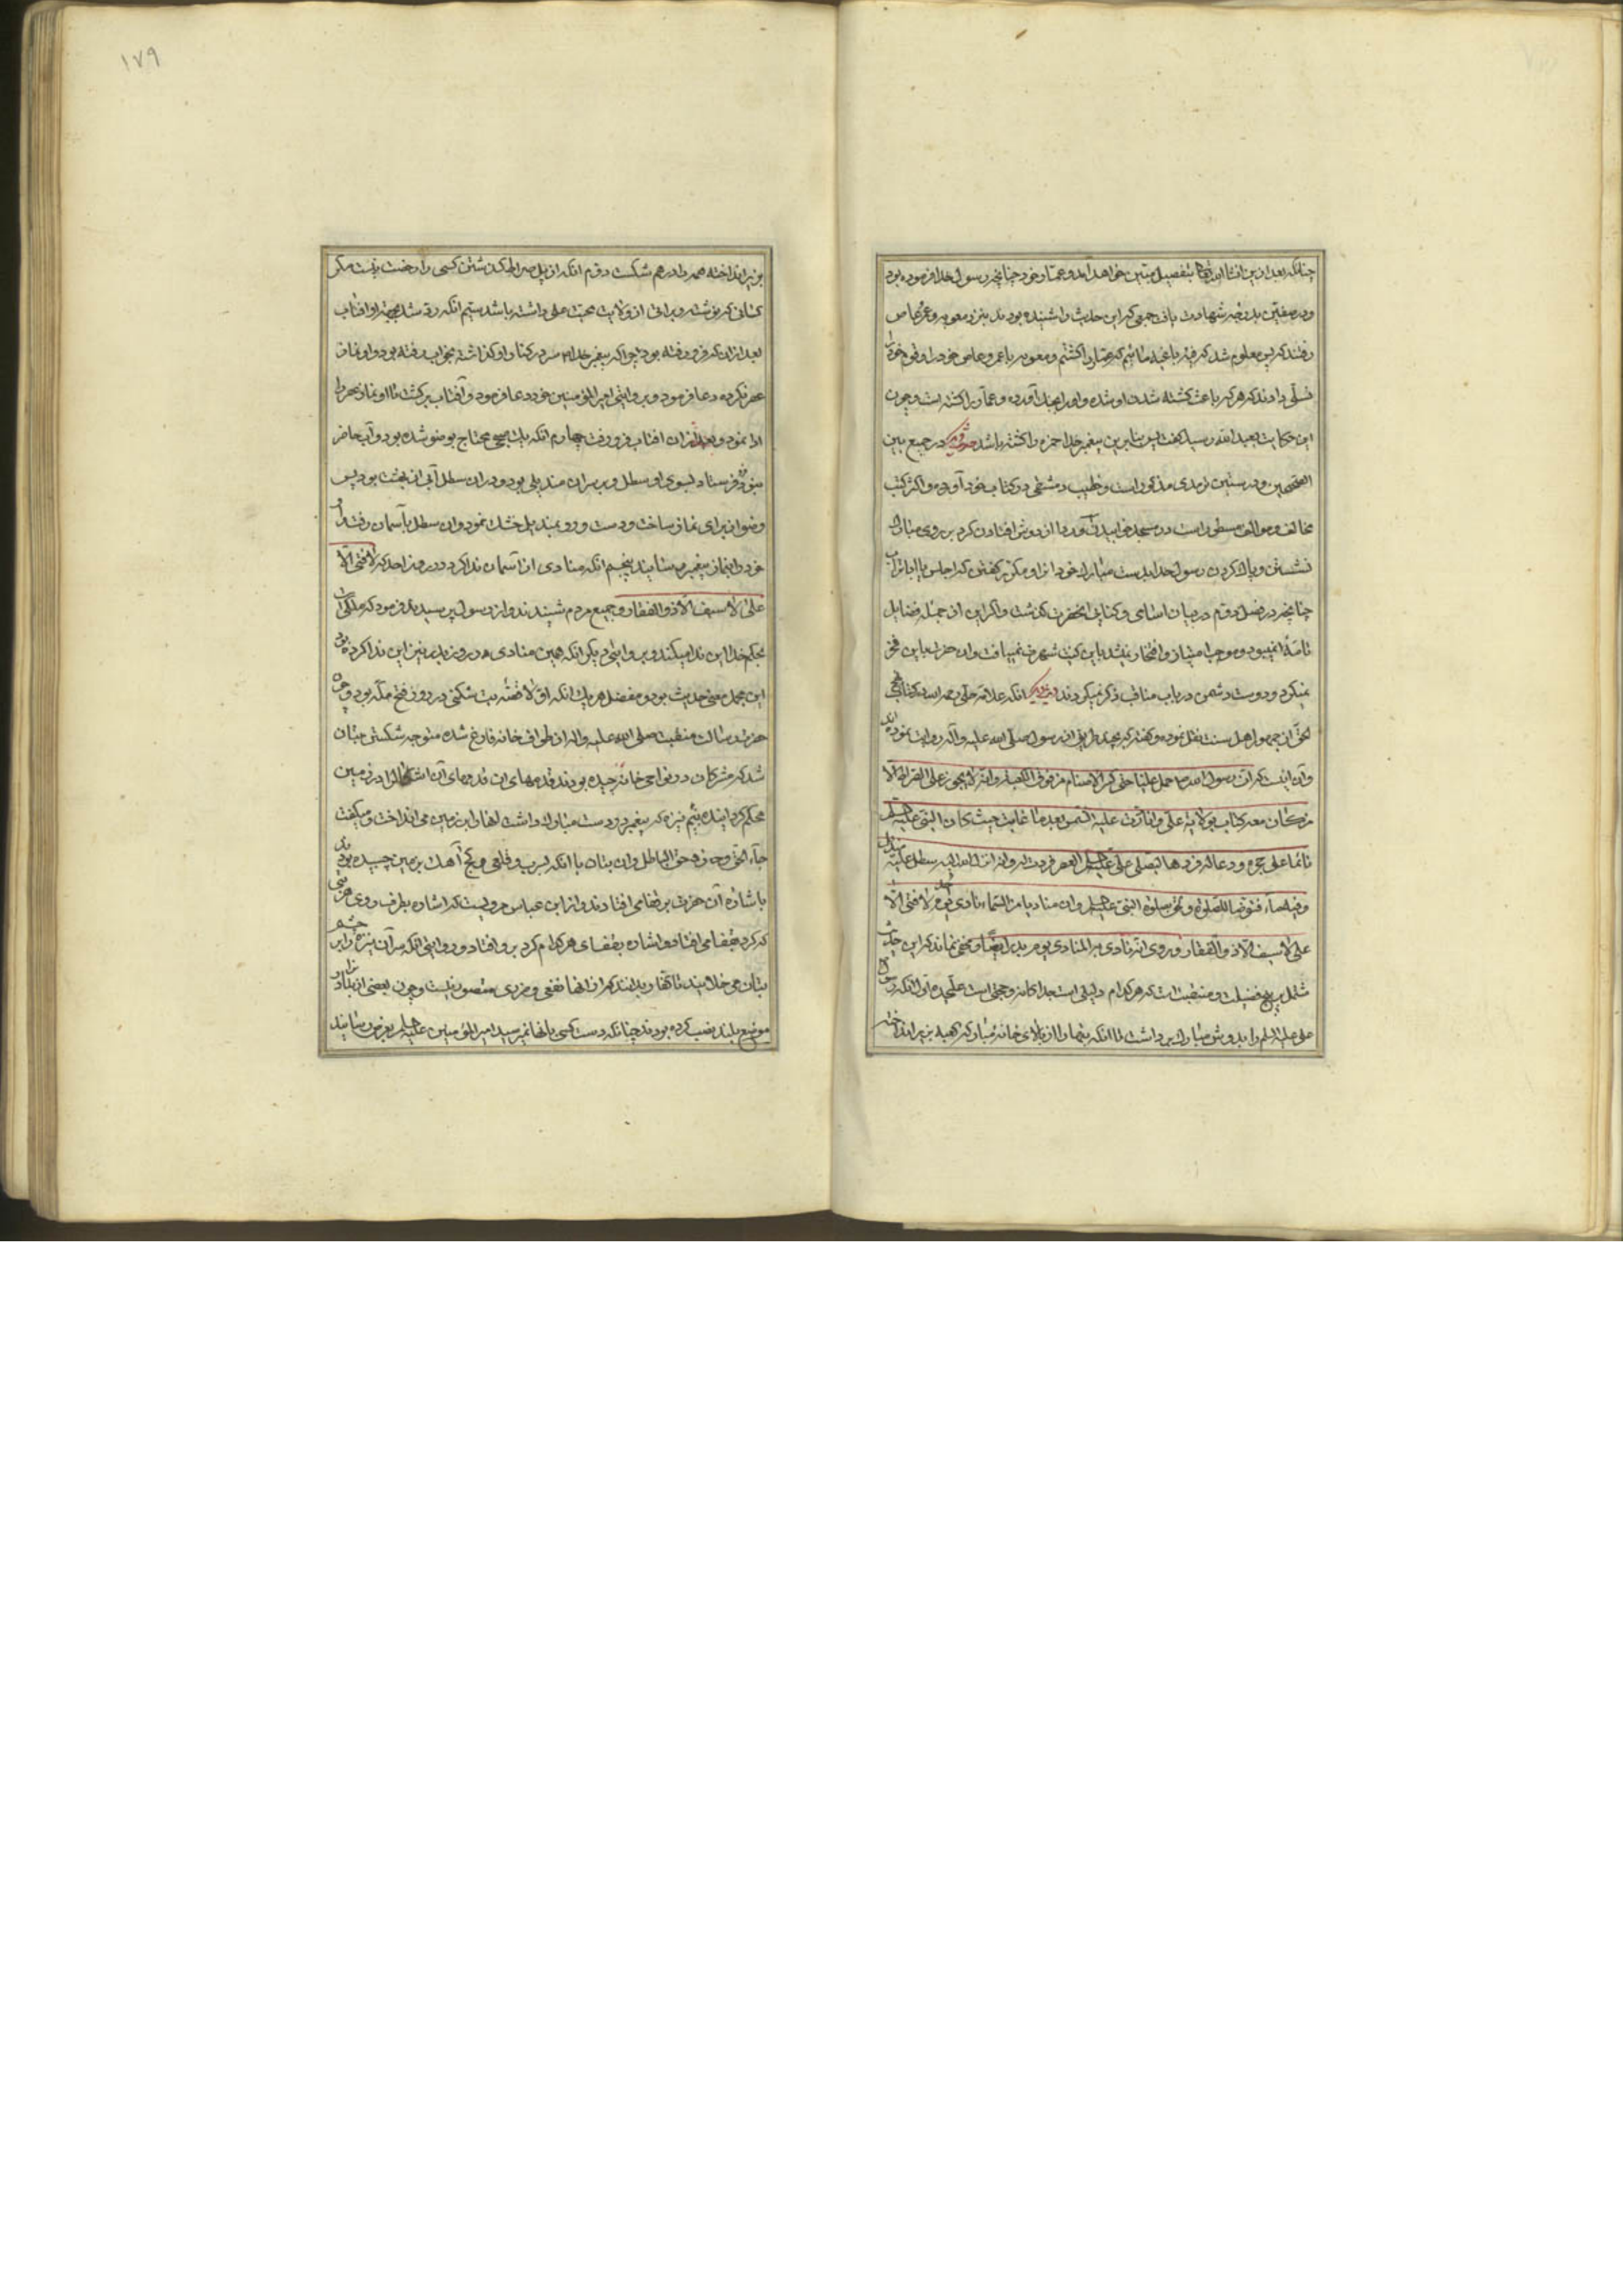 چنانکه بعد ازین انشاالله تعالی بتفصیل مبین خواهد آمد و عمار خود چنانچه رسول خدا فرموده بود
و در صفین بدرجه شهادت یافت جمعی که این حدیث را شنیده بودند بنزد معویه و عمرو عاص
رفتند که پس معلوم شد که فئه باغیه مائیم که عمار را کشتیم و معویه با عمرو عاص خود را و قوم خود را
تسلی دادند که هر که باعث کشته شدن او شده و او را بجنگ آورده عمار را کشته است و چون
این حکایت بعبدالله رسید گفت پس بنابرین پیغمبر خدا حمزه را کشته باشد در جمیع بین
الصحیحین و در سنن ترمدی مذکور است و خطیب دمشقی در کتاب خود آورده و اکثر کتب
مخالف و موالف مسطور است در مسجد خوابیدن و ردا از دوش افتادن گرد بر روی مبارک
نشستن و پاک کردن رسول خدا بدست مبارک خود از او مکرر گفتن که اجلس یا ابا تراب
چنانچه در فصل دوم در بیان اسامی و کنای انحضرت گذشت و اگر این از جمله فضایل
تامه نمیبود و موجب امتیاز و افتخار نمیشد باین کنیت شهرت نمییافت و ان حضرت باین فخر
نمیکرد و دوست دشمن در باب مناقب ذکر نمیکردند انکه علامه حلی رحمه الله در کتاب نهج
الحق از جمهور اهل سنت نقل نموده و گفته که بچند طریق از رسول صلی الله علیه و آله روایت نموده اند
و آن اینست که ان رسول الله حمل علیا حتی کسر الاصنام من فوق الکعبه و انه لا یجوز علی الصراط الا
من کان معه کتاب بولایة علی و انه ردت علیه الشمس بعد ما غابت حیث کان النبی علیه السلم
نائما علی حجره و دعا له فردها لیصلی علی علیه السلم العصر فردت له و انه انزل الله الیه سطل علیه مندیل
و فیه ماء فتوضا للصلوة و لحق بصلوة النبی علیه السلم و ان منادیا من السماء نادی یوم احد لا فتی الا
علی لا سیف الا ذو الفقار و روی انه نادی به المنادی یوم بدر ایضا و مخفی نماند که این حدیث
مشتمل بر پنج فضیلت و منقبت است که هر کدام دلیلی است جداگانه و حجتی است علیحده اول انکه رسول
علی علیه السلم را بدوش مبارک برداشت تا انکه بتها را از بالای خانه مبارکه کعبه بزیر انداخته
۱۷۹
بزیر انداخته همه را درهم شکست دوم انکه از پل صراط گذشتن کسی را رخصت نیست مگر
کسانی که نوشته و براتی از ولایت و محبت علی داشته باشد سیم انکه رد شد بجهة او افتاب
بعد از ان که فرو رفته بود چرا که پیغمبر خدا سر در کنار او گذاشته بخواب رفته بود و او نماز
عصر نکرده دعا فرمود و بروایتی امیر المؤمنین خود دعا فرمود و آفتاب برگشت تا او نماز عصر را
ادا نمود و بعد از ان افتاب فرو رفت چهارم انکه یک صبحی محتاج بوضو شده بود و آب حاضر
نبود فرستاد بسوی او سطل و بر سر ان مندیلی بود و در ان سطل آبی از بهشت بود پس
وضو از برای نماز ساخت و دست و رو بمندیل خشک نمود و ان سطل بآسمان رفت و او
خود را بنماز پیغمبر رسانید پنجم انکه منادی از آسمان ندا کرد در روز احد که لا فتی الا
علی لا سیف الا ذو الفقار و جمیع مردم شنیدند و از رسول پرسیدند فرمود که ملکی است
بحکم خدا این ندا میکند و بروایتی دیگر انکه همین منادی در روز بدر نیز این ندا کرده بود
این مجمل معنی حدیث بود و مفصل هر یک انکه اولا قصه بت شکنی در روز فتح مکه بود چون
حضرت رسالت منقبت صلی الله علیه و اله از طواف خانه فارغ شده متوجه شکستن بتان
شد که مشرکان در نواحی خانه چیده بودند و قدمهای ان در زمین
محکم گردانیده بنیم نیزه که پیغمبر در دست مبارک داشت انها را بزمین می انداخت و میگفت
جاء الحق و زهق الباطل و ان بتان با انکه بسرب و قلعی و گچ و آهک بر زمین چسپیده بودند
باشاره آن حضرت بر قفا می افتادند و از ابن عباس مرویست که اشاره بطرف روی هر بتی
که کرد بقفا می افتاد و اشاره بقفای هر کدام کرد برو افتاد و روایتی انکه سر آن نیزه را بر چشم
بتان می خلانید تا کفار بدانند که از انها نفعی و ضرری متصور نیست و چون بعضی از بتان را در
موضع بلند نصب کرده بودند چنانکه دست کسی بانها نمیرسید امیر المؤمنین علیه السلم بعرض رسانید